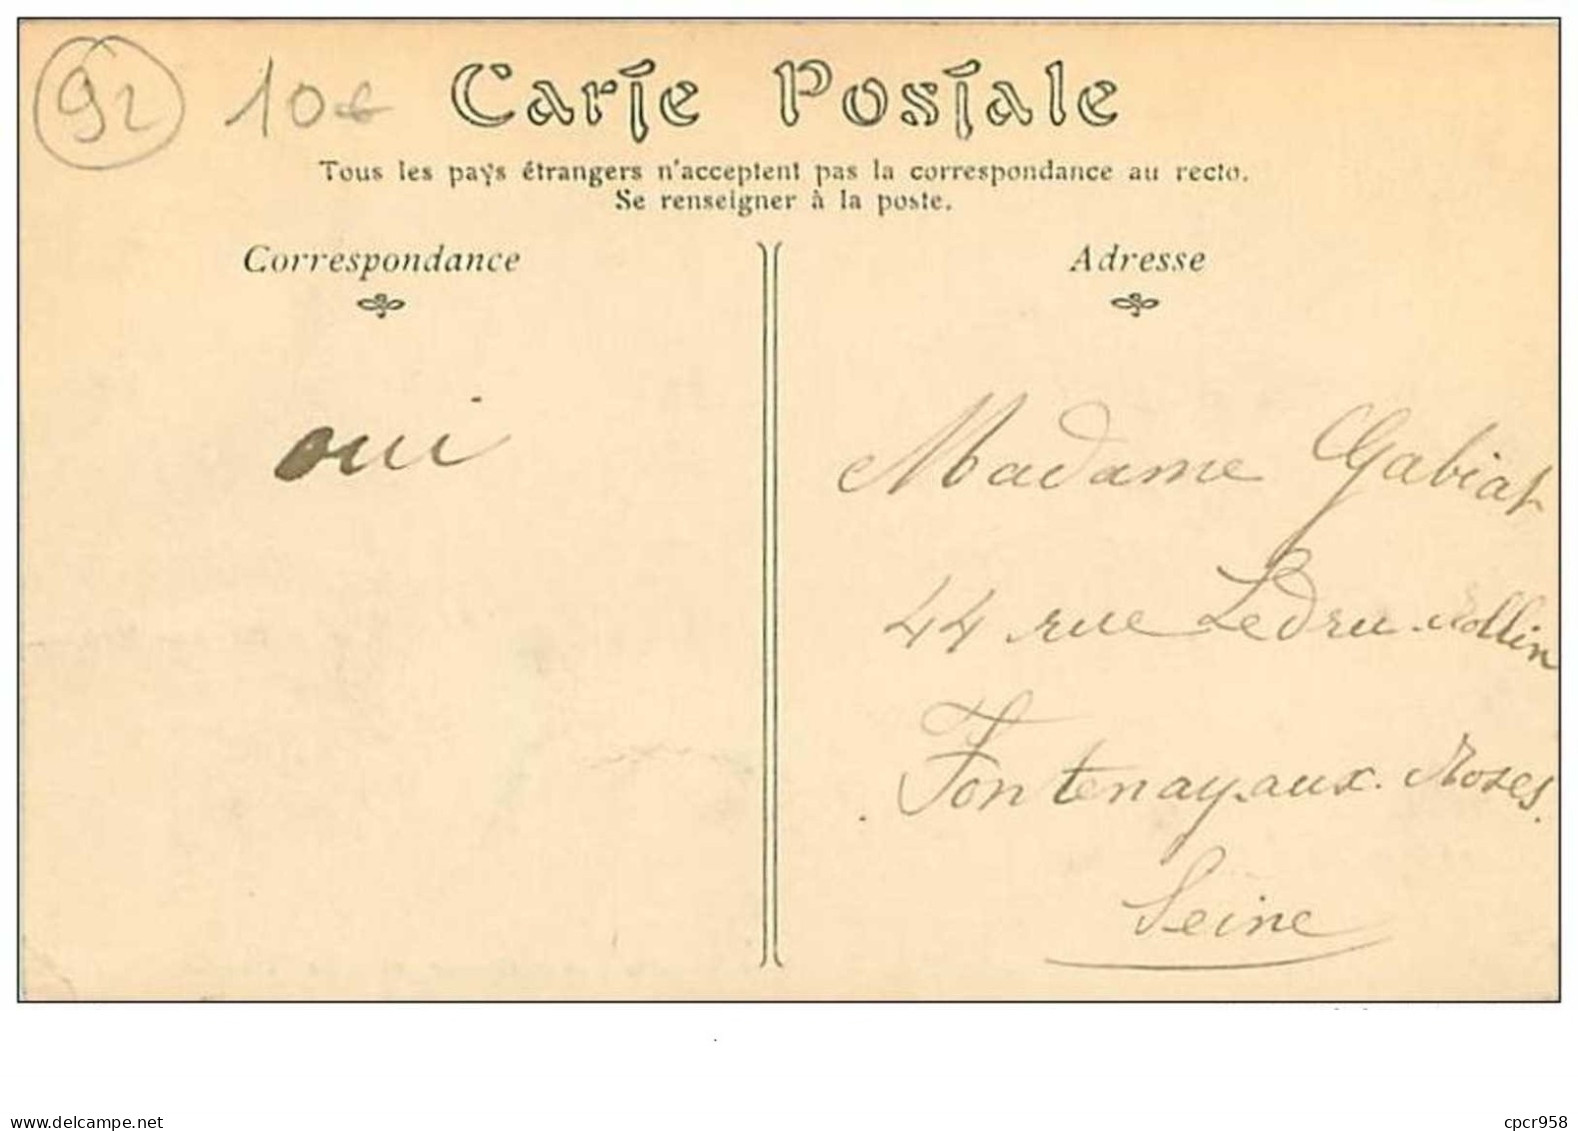 92 10€ Carte Postale
Tous les pays étrangers n'acceptent pas la correspondance au recto.
Se renseigner à la poste.
Correspondance
Adresse
oui
Madame Gabiat
44 rue Ledru-Rollin
Fontenay-aux-Roses.
Seine
www.delcampe.net
cpcr958